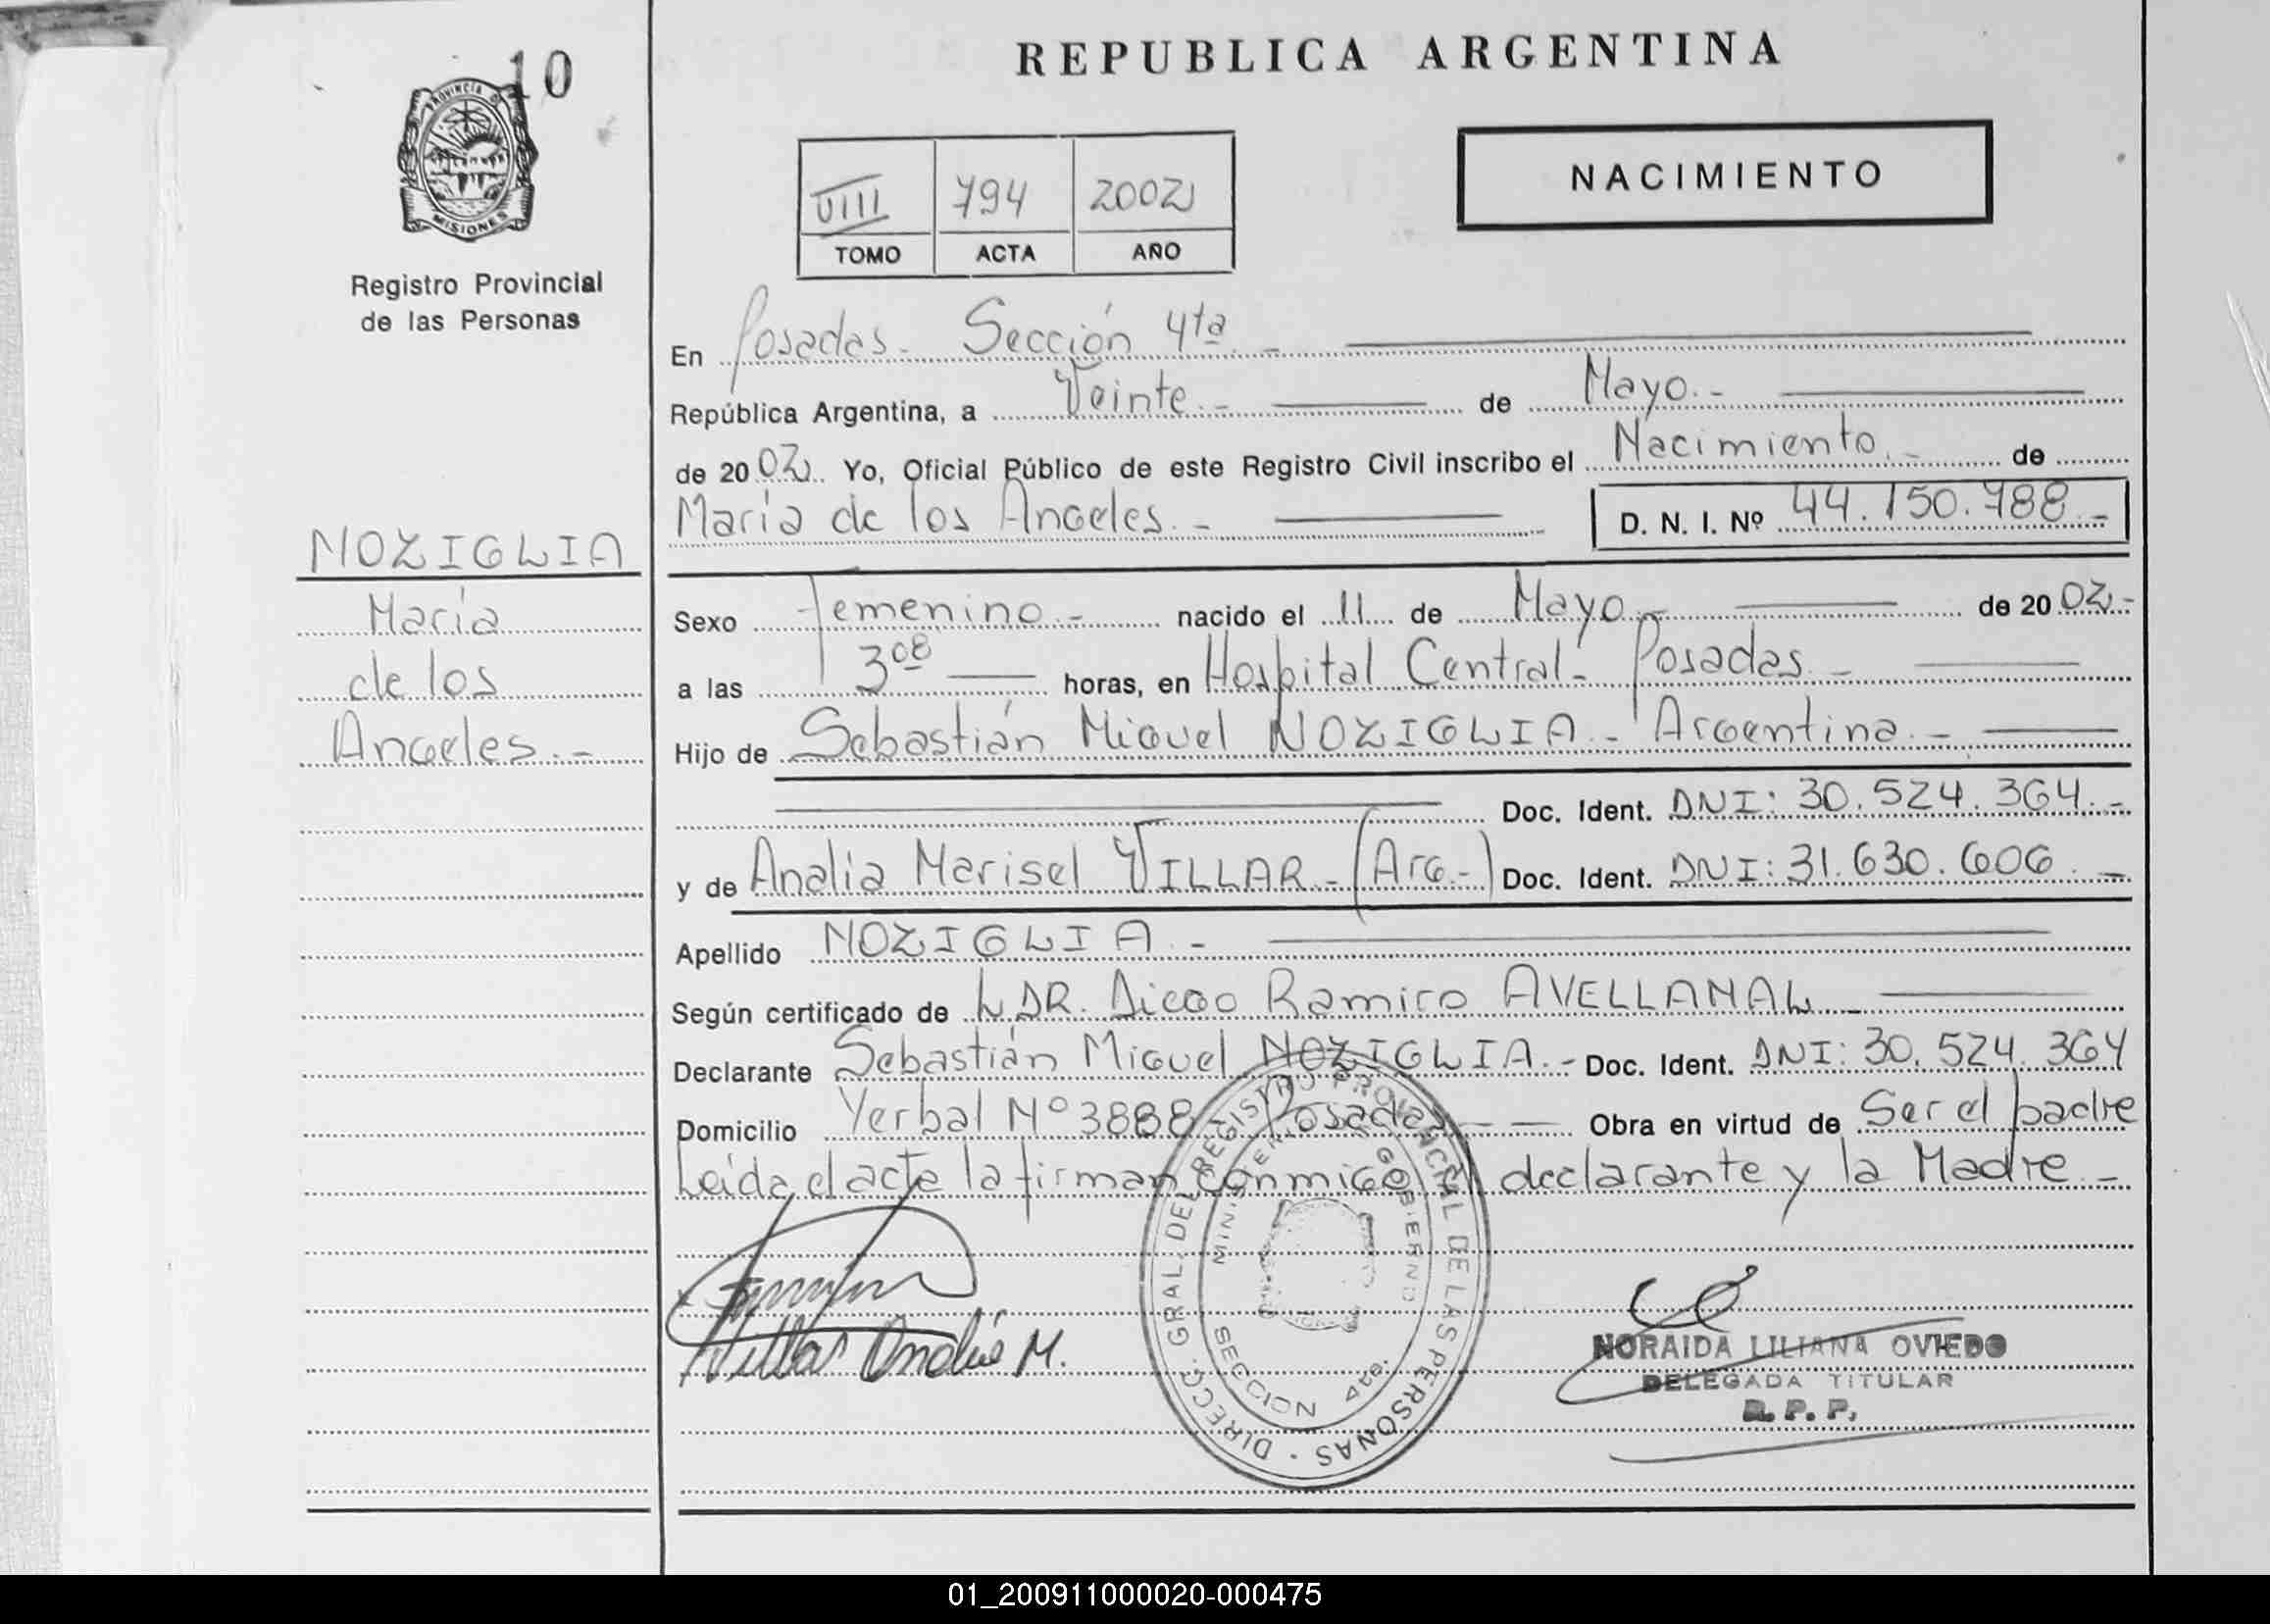 10
PROVINCIA DE
MISIONES
Registro Provincial
de las Personas
NOZIGLIA
María
de los
Angeles.-
REPUBLICA ARGENTINA
VIII 794 2002
TOMO ACTA AÑO
NACIMIENTO
En Posadas - Sección 4ta -
República Argentina, a Veinte.- de Mayo.-
de 2002. Yo, Oficial Público de este Registro Civil inscribo el Nacimiento.- de
María de los Angeles.- D. N. I. Nº 44.150.788.-
Sexo femenino.- nacido el 11 de Mayo.- de 2002.-
a las 3 08 horas, en Hospital Central - Posadas.-
Hijo de Sebastián Miguel NOZIGLIA - Argentina.-
Doc. Ident. DNI: 30.524.364.-
y de Analia Marisel VILLAR - (Arg.-) Doc. Ident. DNI: 31.630.606.-
Apellido NOZIGLIA.-
Según certificado de DR. Diego Ramiro AVELLANAL
Declarante Sebastián Miguel NOZIGLIA.- Doc. Ident. DNI: 30.524.364
Domicilio Yerbal Nº 3888 - Posadas - Obra en virtud de Ser el padre
Leída el acta la firman conmigo el declarante y la Madre.-
Villar Analia M.
DIRECC. GRAL. DEL REGISTRO PROVINCIAL DE LAS PERSONAS
GOBIERNO
SECCION 4ta.
NORAIDA LILIANA OVIEDO
DELEGADA TITULAR
R. P. P.
01_200911000020-000475